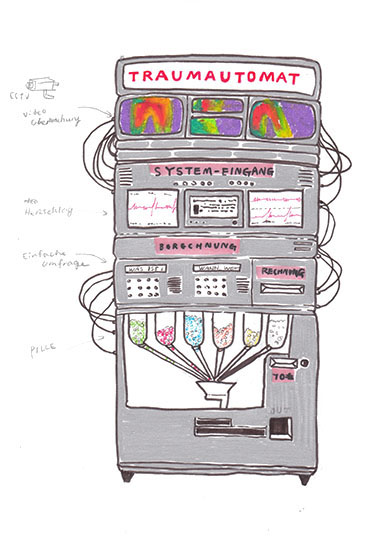 TRAUMAUTOMAT
CCTV
Video
Überwachung
SYSTEM-EINGANG
Herzschlag
BERECHNUNG
Einfache
Umfrage
WAS IST?
RECHNUNG
PILLE
OUT